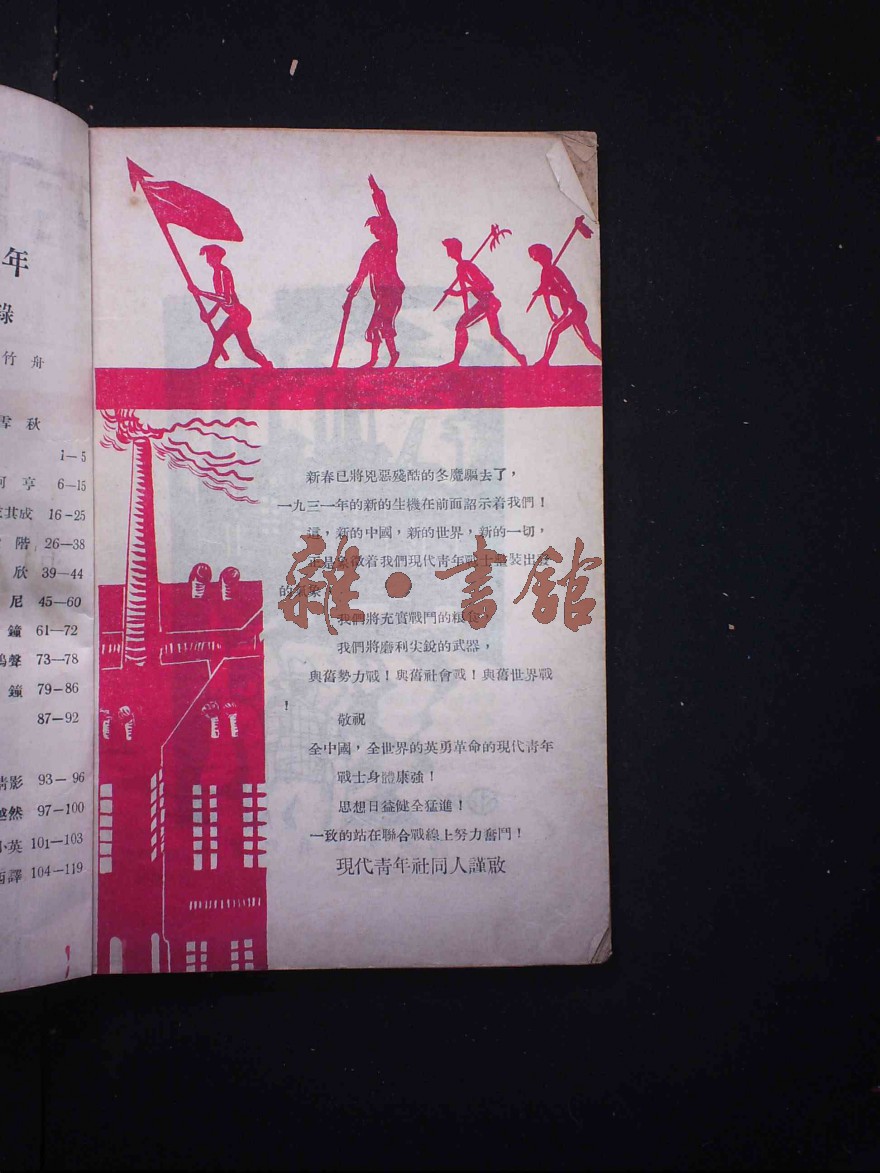 年
錄
竹 舟
雪 秋
1—5
亨 6—15
其成 16-25
階 26—38
欣 39—44
尼 45—60
鐘 61—72
鳴聲 73—78
鐘 79—86
87—92
影 93—96
越然 97—100
小英 101—103
西譯 104—119
新春已將兇惡殘酷的冬魔驅去了，
一九三一年的新的生機在前面詔示着我們！
這，新的中國，新的世界，新的一切，
正是象徵着我們現代青年戰士整裝出發
的氣象！
我們將充實戰鬥的糧食，
我們將磨利尖銳的武器，
與舊勢力戰！與舊社會戰！與舊世界戰
！
敬祝
全中國，全世界的英勇革命的現代青年
戰士身體康強！
思想日益健全猛進！
一致的站在聯合戰線上努力奮鬥！
現代青年社同人謹啟
雜·書館